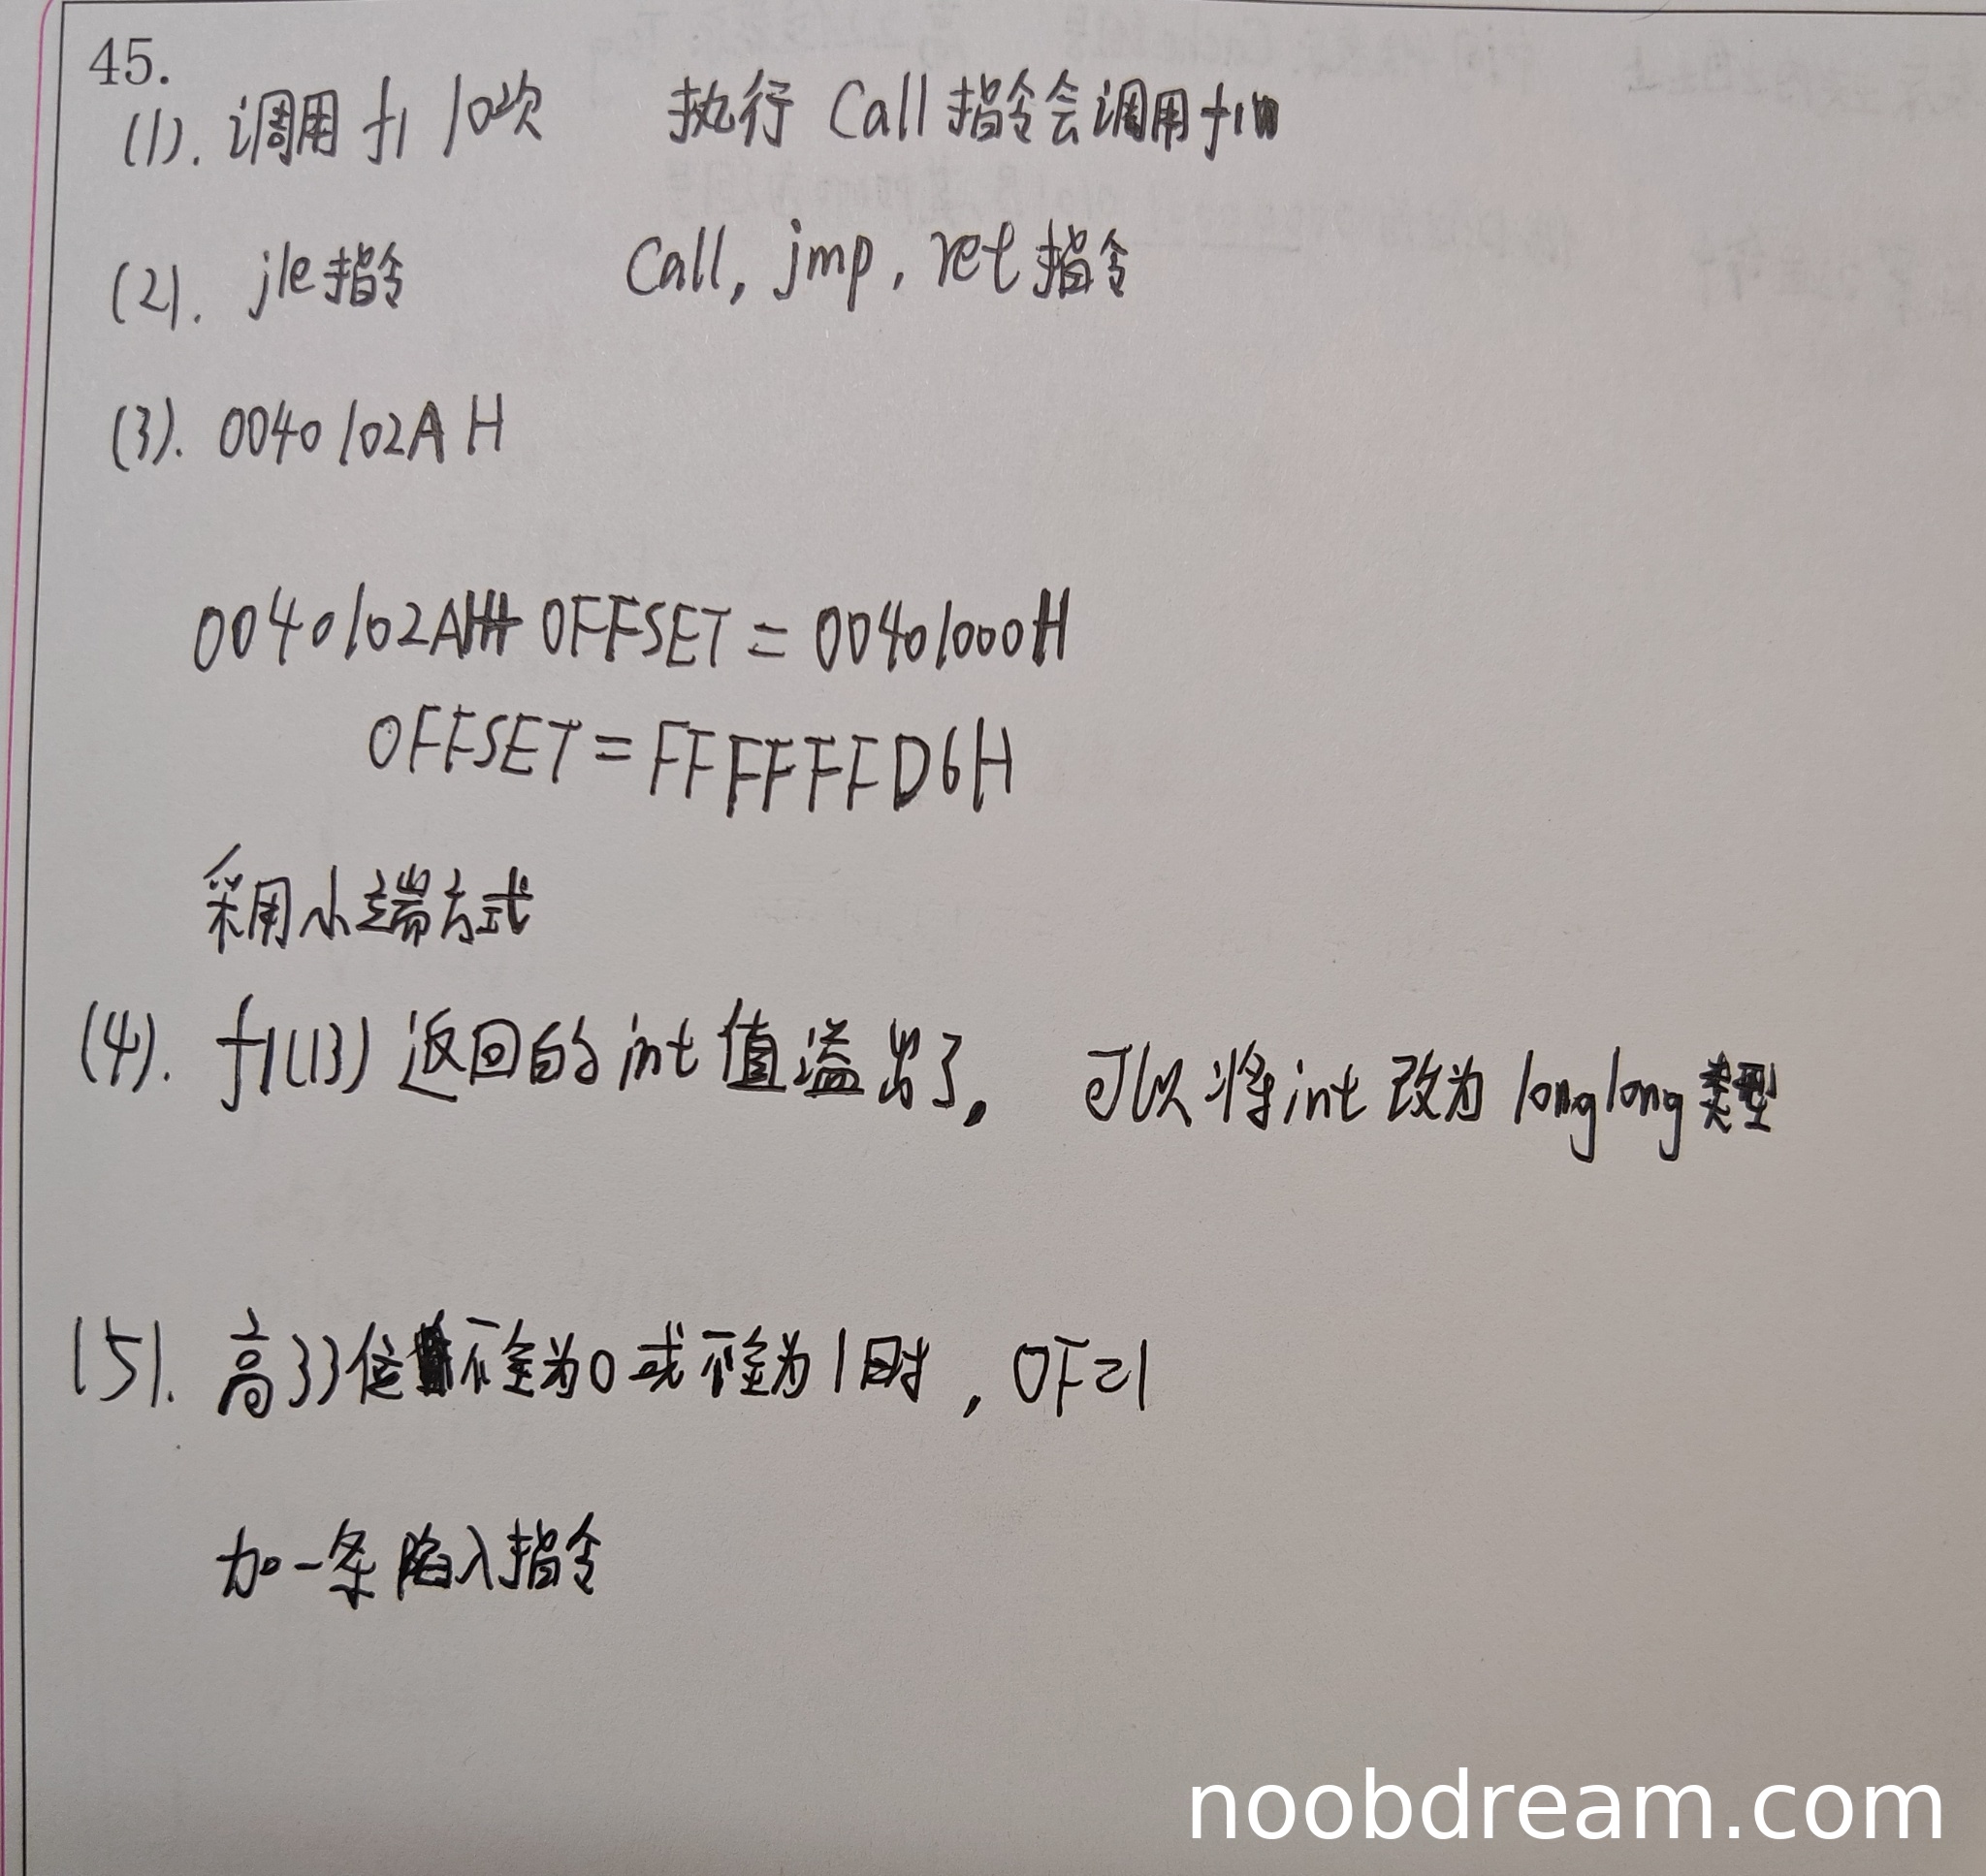 45.
(1). 调用 f1 10次 执行 Call 指令会调用 f1
(2). jle指令 Call, jmp, ret 指令
(3). 0040102A H
0040102AH+ OFFSET = 00401000H
OFFSET = FFFFFFD6H
采用小端方式
(4). f1(13) 返回的 int 值溢出了。 可以将int 改为 longlong 类型
(5). 高33位不全为0 或不全为1时, OF=1
加一条陷入指令
noobdream.com